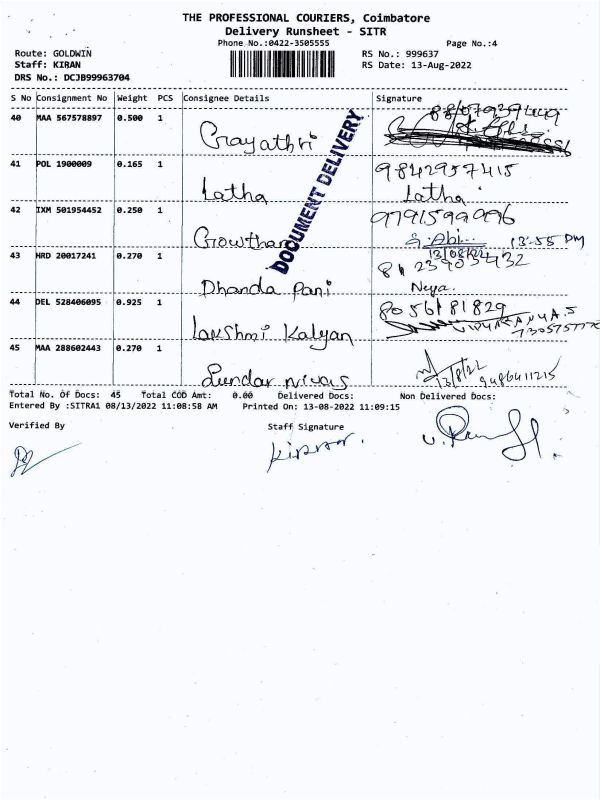 THE PROFESSIONAL COURIERS, Coimbatore
Delivery Runsheet - SITR
Phone No.:0422-3505555 Page No.:4
Route: GOLDWIN RS No.: 999637
Staff: KIRAN RS Date: 13-Aug-2022
DRS No.: DCJB99963704
S No Consignment No Weight PCS Consignee Details Signature
40 MAA 567578897 0.500 1 Gayathri
41 POL 1900009 0.165 1 Latha 9842957415
Latha
42 IXM 501954452 0.250 1 Gowtham 9791599996
S. Abi 13:55 PM
13/08/22
43 HRD 20017241 0.270 1 Dhanda Pani
44 DEL 528406095 0.925 1 Lakshmi Kalyan 8056181829
45 MAA 288602443 0.270 1 Sundar nivas
13/8/22
9486411215
DOCUMENT DELIVERY
Total No. Of Docs: 45 Total COD Amt: 0.00 Delivered Docs: Non Delivered Docs:
Entered By :SITRA1 08/13/2022 11:08:58 AM Printed On: 13-08-2022 11:09:15
Verified By Staff Signature